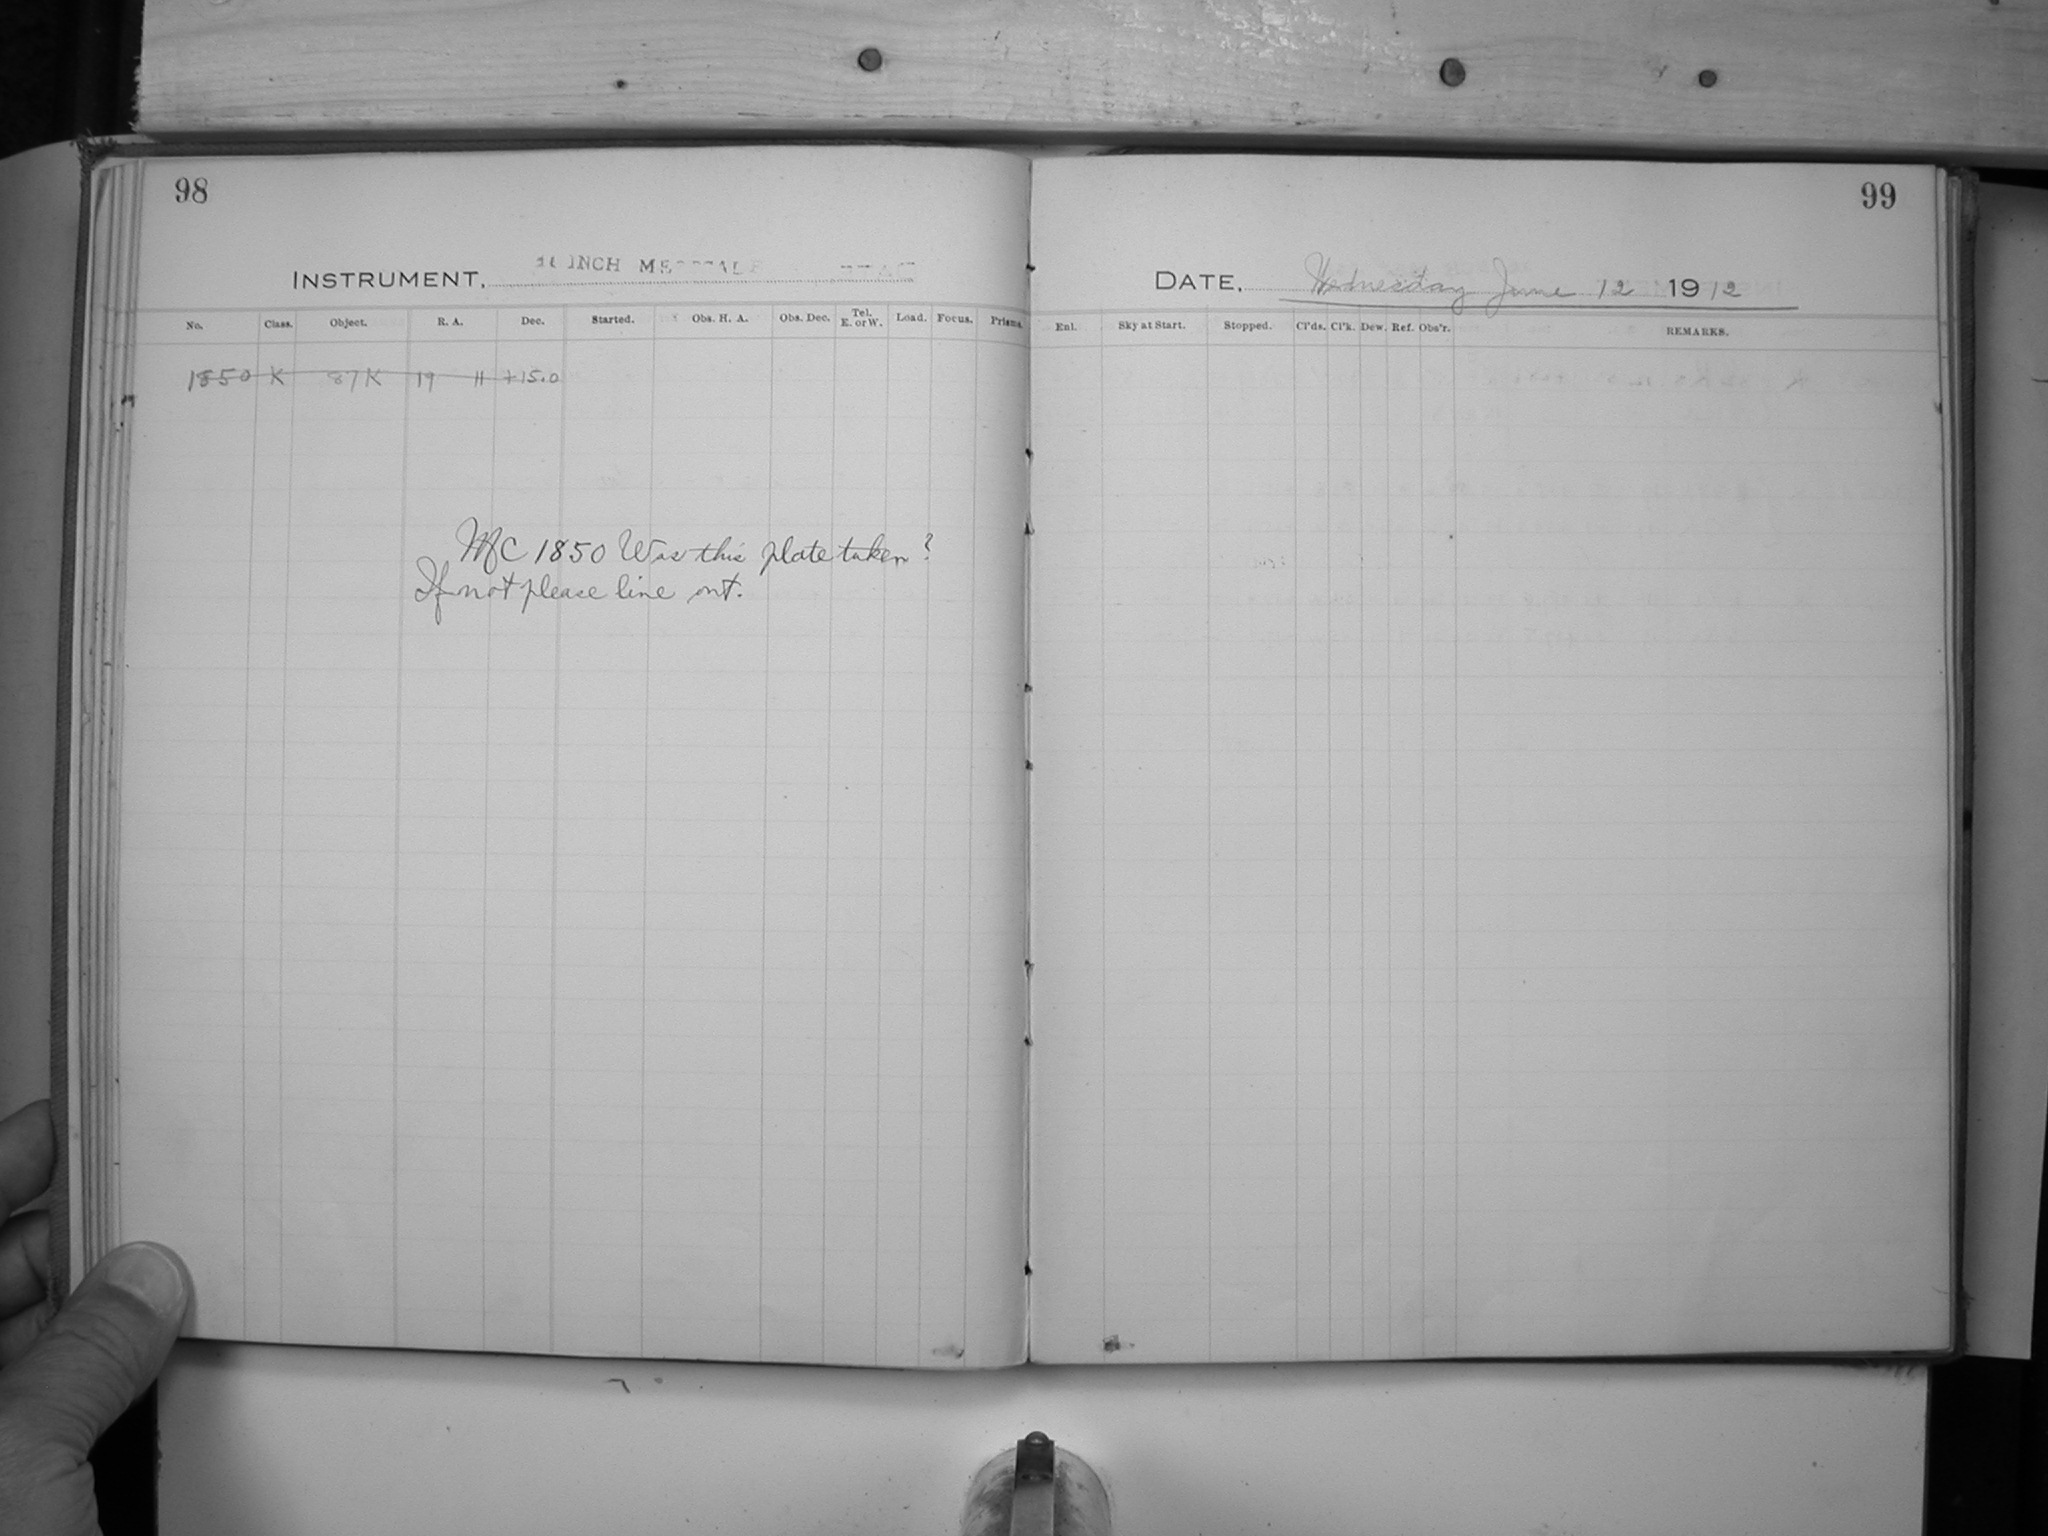 98
99
INSTRUMENT, INCH
DATE, Wednesday June 12 1912
No. Class. Object. R. A. Dec. Started. Obs. H. A. Obs. Dec. Tel. E. or W. Load. Focus. Prisms.
Enl. Sky at Start. Stopped. Cl'ds. Cl'k. Dew. Ref. Obs'r. REMARKS.
1850 K 87K 19 11 +15.0
MC 1850 Was this plate taken?
If not please line out.